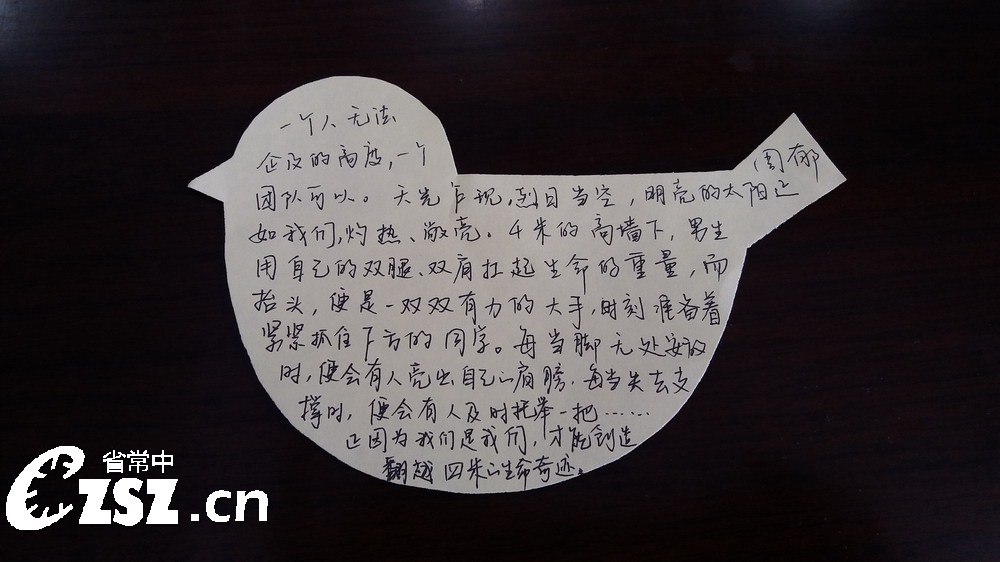 一个人无法
企及的高度，一个
周郁
团队可以。天光乍现，烈日当空，明亮的太阳正
如我们，灼热、敞亮。4米的高墙下，男生
用自己的双腿、双肩扛起生命的重量，而
抬头，便是一双双有力的大手，时刻准备着
紧紧抓住下方的同学。每当脚无处安放
时，便会有人亮出自己的肩膀，每当失去支
撑时，便会有人及时托举一把……
正因为我们是我们，才能创造
翻越四米的生命奇迹。
省常中
CZSZ.cn